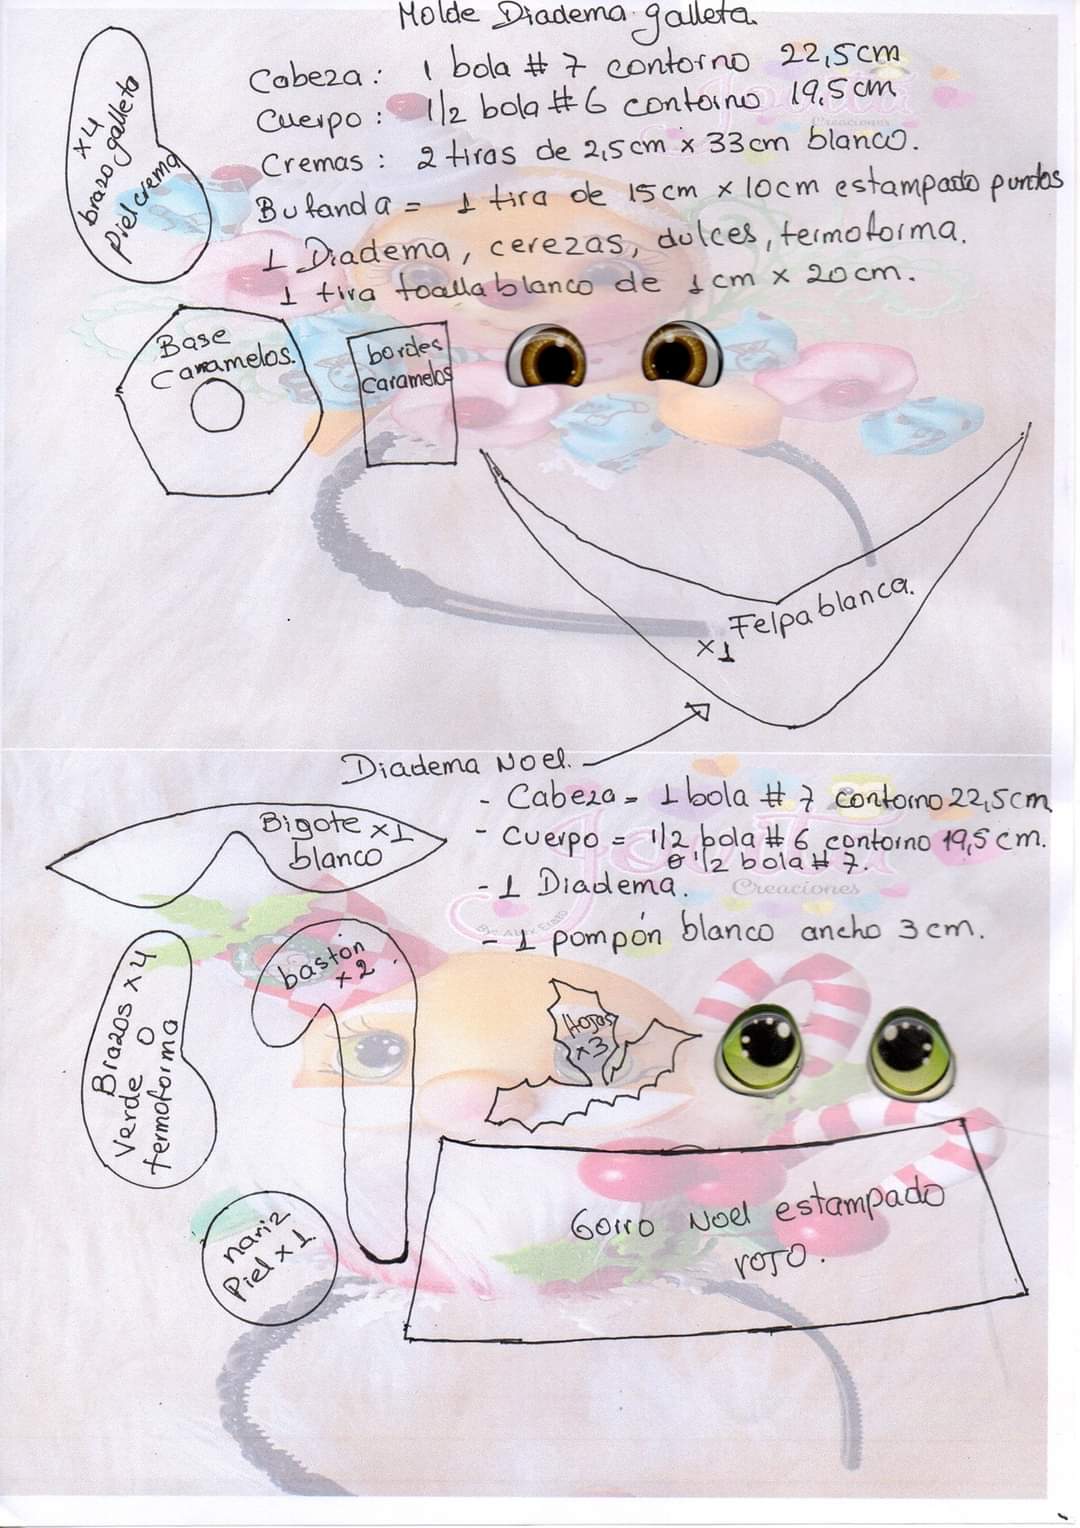 Molde Diadema galleta.
Cabeza: 1 bola # 7 contorno 22,5cm
Cuerpo: 1/2 bola # 6 contorno 19,5cm
Cremas: 2 tiras de 2,5cm x 33cm blanco.
Bufanda = 1 tira de 15cm x 10cm estampado puntos
1 Diadema, cerezas, dulces, termoforma.
1 tira toalla blanco de 1cm x 20cm.
x4
brazo galleta
Piel crema
Base
Caramelos.
bordes
Caramelos
Creaciones
Felpa blanca.
x1
Diadema Noel.
- Cabeza = 1 bola # 7 contorno 22,5cm
- Cuerpo = 1/2 bola # 6 contorno 19,5cm.
o 1/2 bola # 7.
- 1 Diadema.
- 1 pompón blanco ancho 3cm.
Creaciones
Bigote x1
blanco
Brazos x4
Verde o
termoforma
bastón
x2.
Hojas
x3
nariz
Piel x1.
Gorro Noel estampado
rojo.